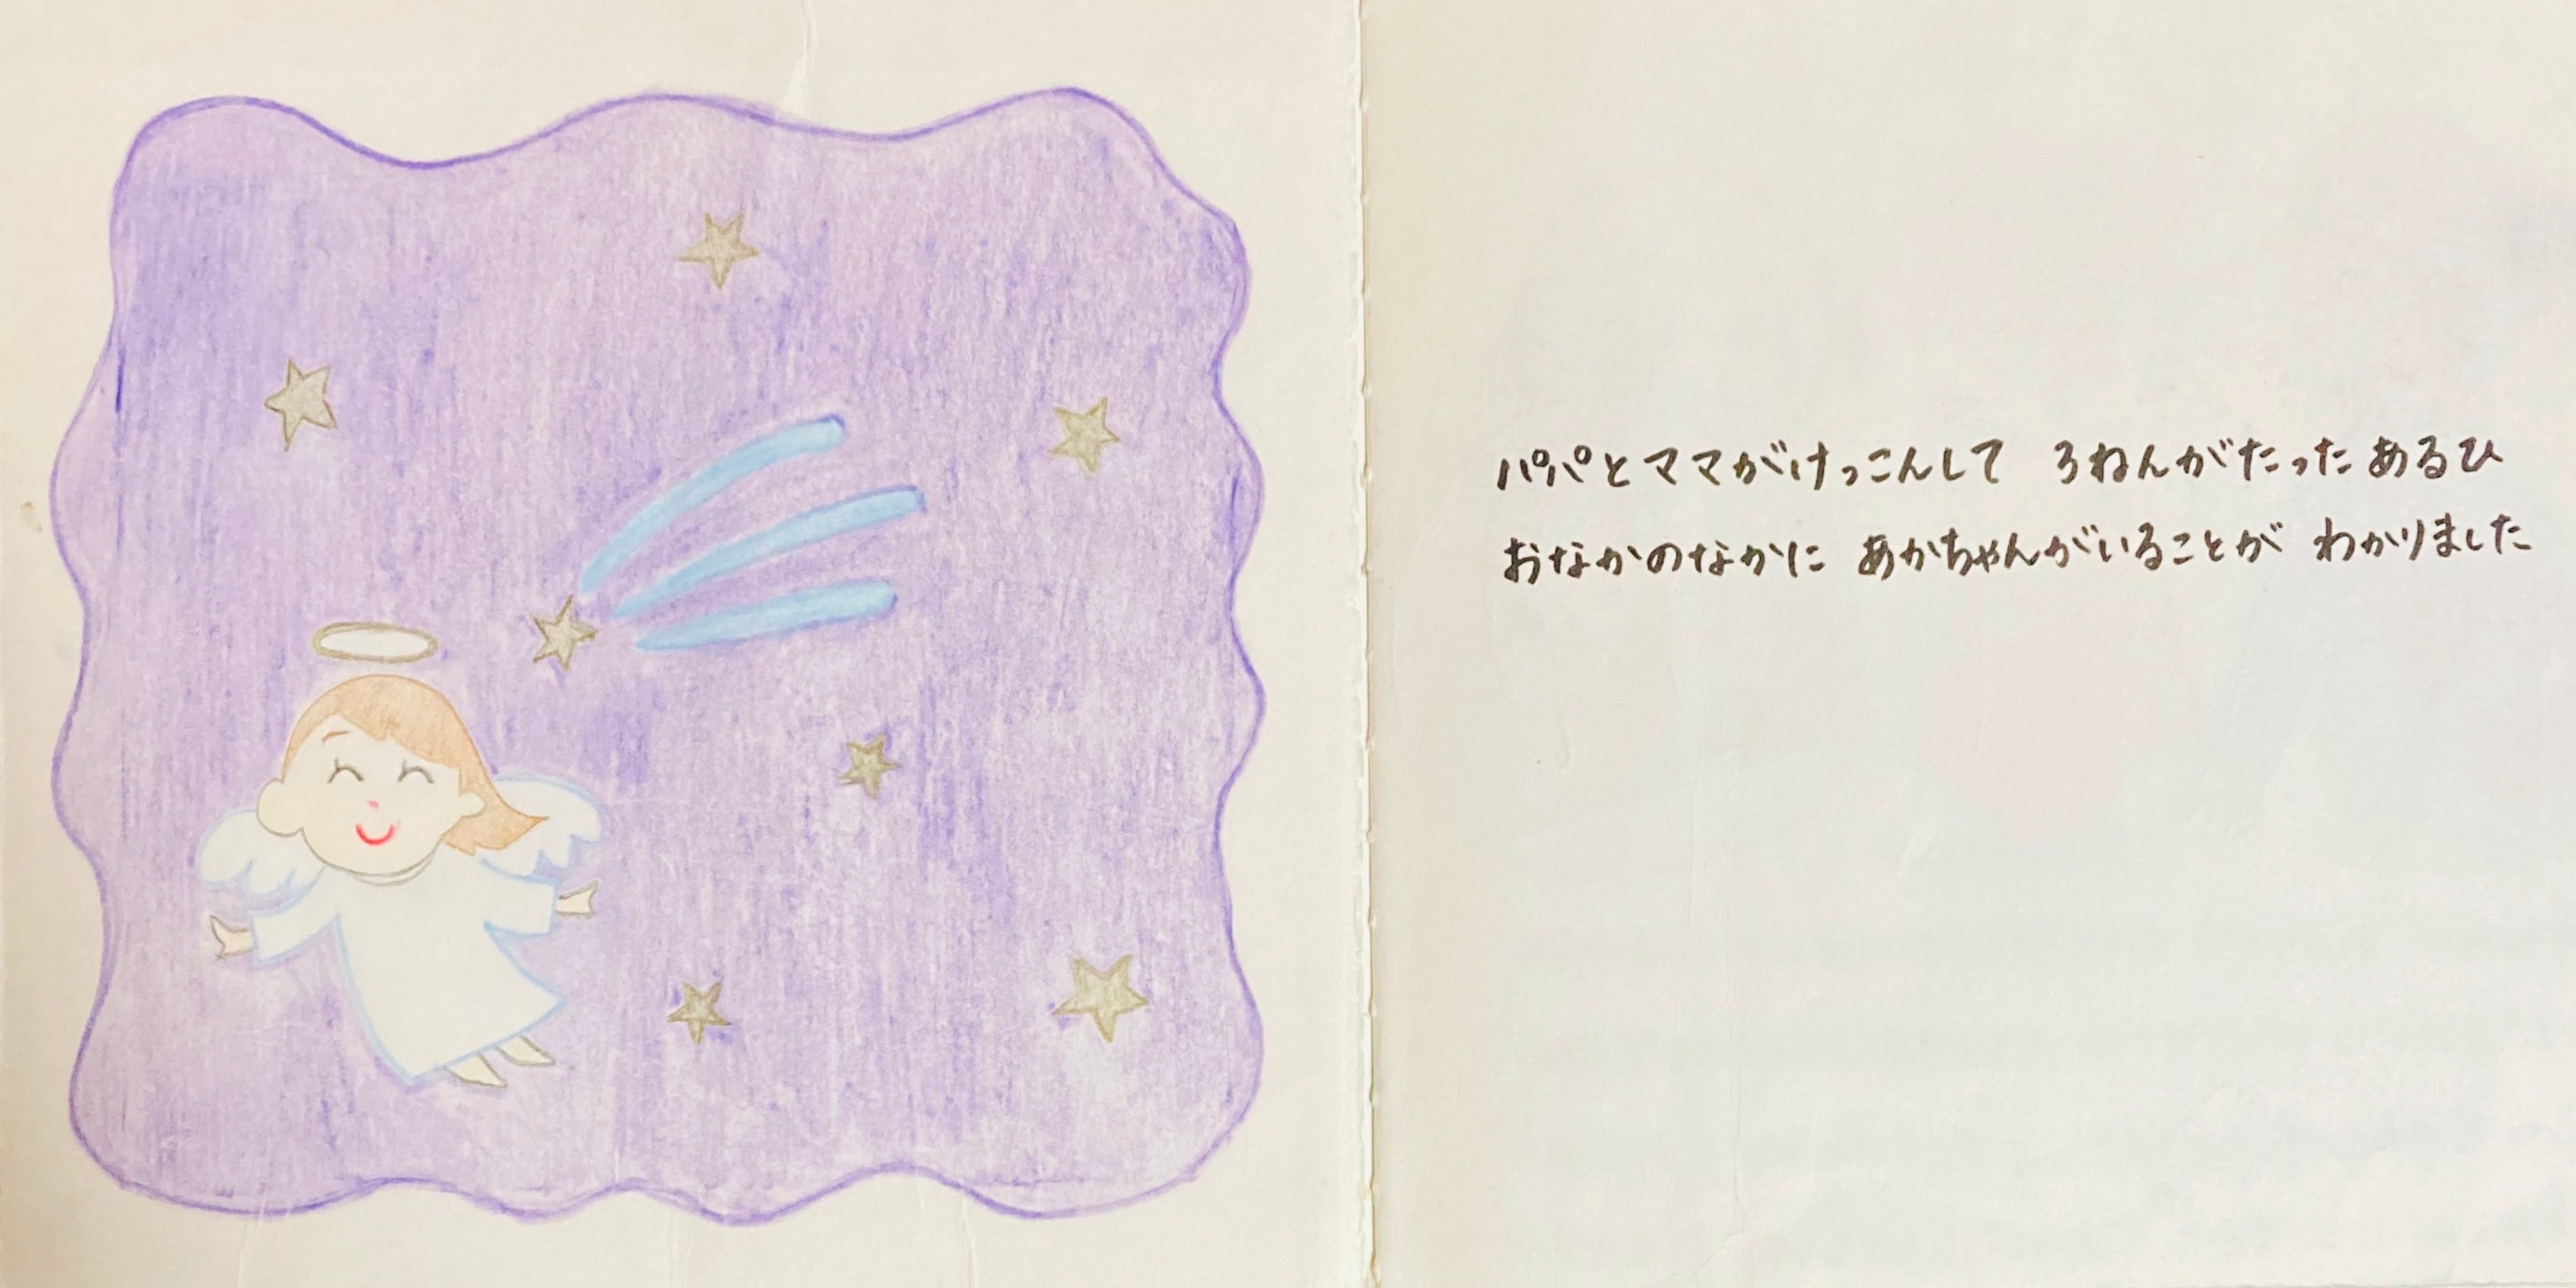 パパとママがけっこんして 3ねんがたった あるひ
おなかのなかに あかちゃんがいることが わかりました